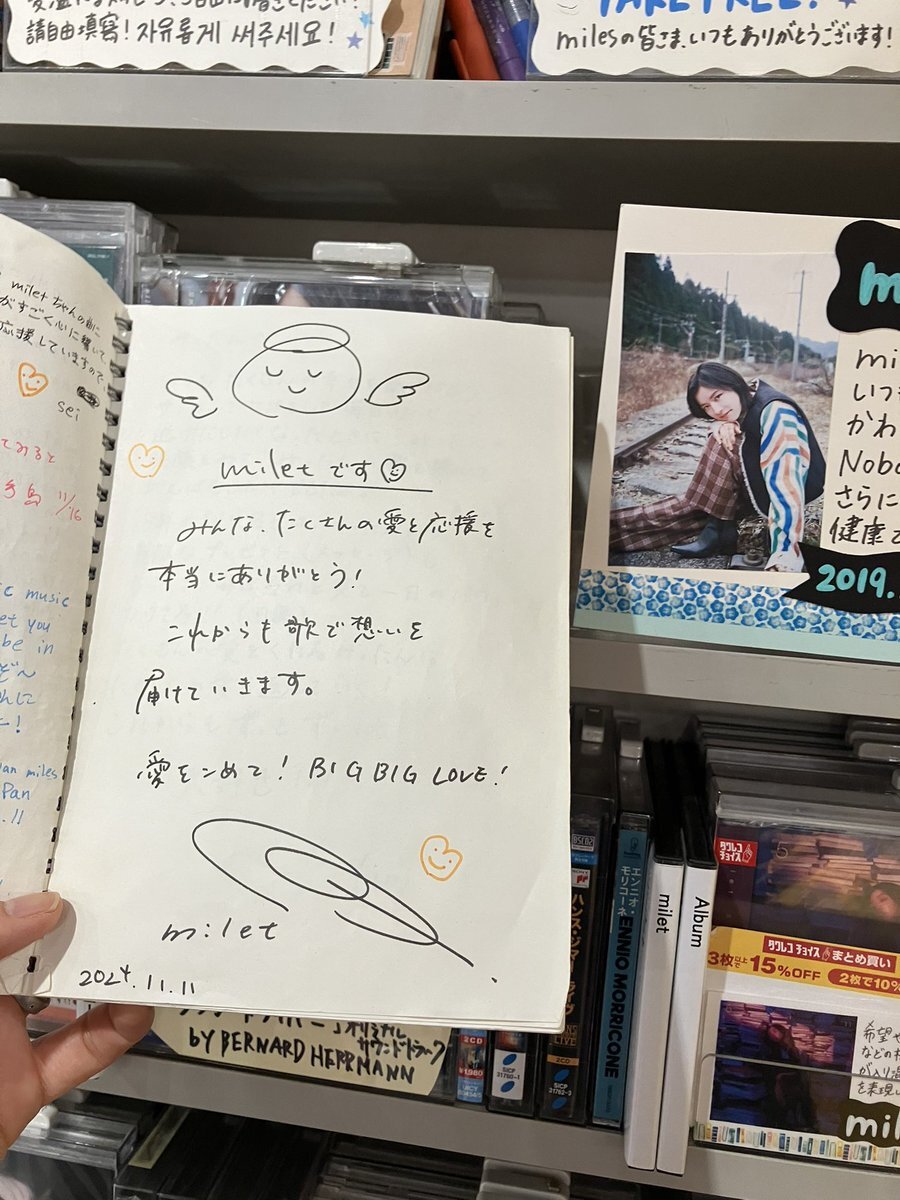 請自由填寫! 자유롭게 써주세요!
TAKE FREE!
milesの皆さま、いつもありがとうございます!
miletちゃんの歌に
がすごく心に響いて、
応援していますので、
sei
てみると
11/16
c music
et you
be in
ぞん
めに
ー!
an miles
Pan
.11
miletです
みんな、たくさんの愛と応援を
本当にありがとう!
これからも歌で想いを
届けていきます。
愛をこめて! BIG BIG LOVE!
milet
2024.11.11
m
mi
いつも
かわ
Nobo
さらに
健康で
2019.
オリジナル
サウンドトラック
by BERNARD HERRMANN
2CD
¥1,980
SICP
31780~1
SONY
ハンス・ジマー
ライヴ
2CD
SICP
31762~3
エンニオ・
モリコーネ
ENNIO MORRICONE
milet
Album
タワレコ
チョイス
5
タワレコ チョイス まとめ買い
3枚以上で 15%OFF 2枚で10%
希望や
などの
が入り混
を表現し
mil